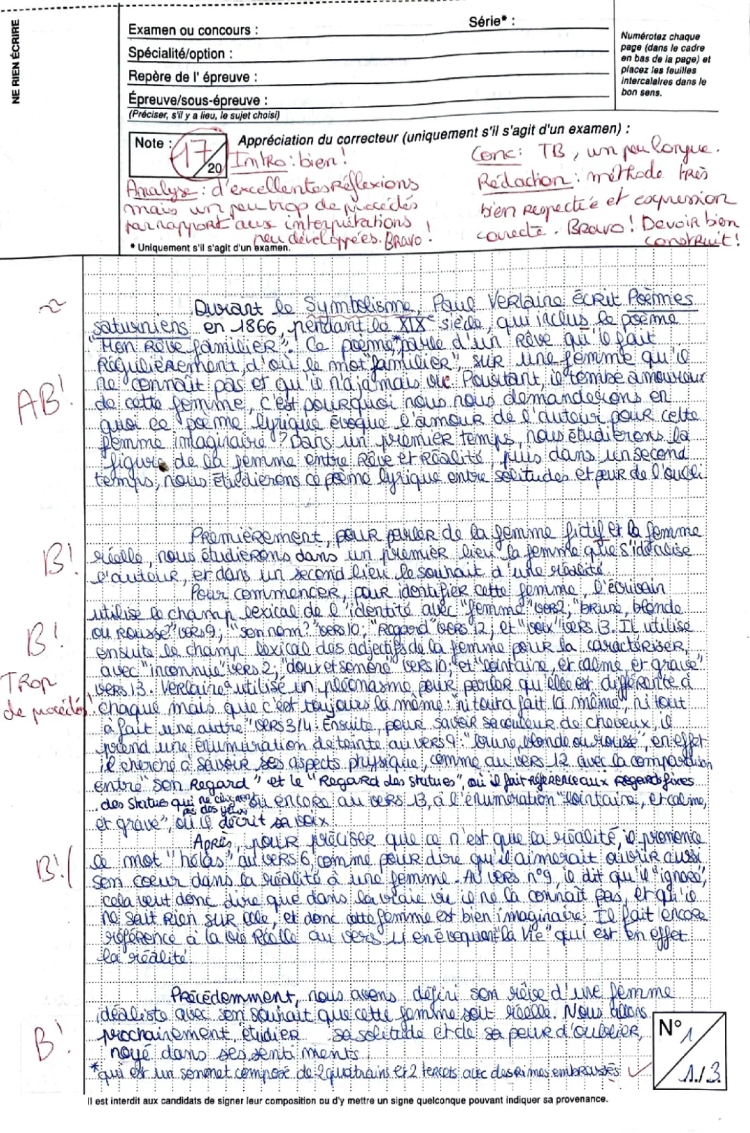 NE RIEN ÉCRIRE
Examen ou concours :
Série* :
Spécialité/option :
Repère de l'épreuve :
Épreuve/sous-épreuve :
(Préciser, s'il y a lieu, le sujet choisi)
Numérotez chaque
page (dans le cadre
en bas de la page) et
placez les feuilles
intercalaires dans le
bon sens.
Note :
17
20
Appréciation du correcteur (uniquement s'il s'agit d'un examen) :
Intro : bien !
Analyse : d'excellentes réflexions
mais un peu trop de procédés
par rapport aux interprétations
peu développées. BRAVO !
Conc : TB, un peu longue.
Rédaction : méthode très
bien respectée et expression
correcte. Bravo ! Devoir bien
construit !
* Uniquement s'il s'agit d'un examen.
Durant le Symbolisme, Paul Verlaine écrit Poèmes
saturniens en 1866, pendant le XIXe siècle, qui inclus le poème
"Mon Rêve familier". Ce poème* parle d'un rêve qu'il fait
Régulièrement, d'où le mot "familier", sur une femme qu'il
ne connaît pas et qu'il n'a jamais vue. Pourtant, il tombe amoureux
de cette femme, c'est pourquoi nous nous demanderons en
quoi ce poème lyrique évoque l'amour de l'auteur pour cette
femme imaginaire ? Dans un premier temps, nous étudierons la
figure de la femme entre Rêve et Réalité, puis dans un second
temps, nous étudierons ce poème lyrique entre solitudes et peur de l'oubli.
AB !
Premièrement, pour parler de la femme fictif et la femme
réelle, nous étudierons dans un premier lieu la femme que s'idéalise
l'auteur, et dans un second lieu le souhait d'une réalité.
B !
Pour commencer, pour identifier cette femme, l'écrivain
utilise le champ lexical de l'identité avec "femme" vers 2, "brune, blonde
ou rousse" vers 9, "son nom ?" vers 10, "Regard" vers 12, et "voix" vers 13. Il utilise
ensuite le champ lexical des adjectifs de la femme pour la caractériser
avec "inconnue" vers 2, "doux et sonore" vers 10, et "lointaine, et calme, et grave"
vers 13. Verlaine utilise un pléonasme pour parler qu'elle est différente à
chaque mais que c'est toujours la même : "ni tout à fait la même", "ni tout
à fait une autre" vers 3/4. Ensuite, pour savoir sa couleur de cheveux, il
prend une énumération de teinte au vers 9 : "brune, blonde ou rousse", en effet
il cherche à savoir ses aspects physique, comme au vers 12 avec la comparaison
entre "son Regard" et le "Regard des statues", où il fait référence aux Regards fixes
des Statues qui ne clignent pas des yeux ou encore au vers 13, à l'énumération "lointaine, et calme,
et grave", où il décrit sa voix.
B !
Trop
de procédés
Après, pour préciser que ce n'est que la réalité, il prononce
le mot "hélas" au vers 6, comme pour dire qu'il aimerait ouvrir aussi
son coeur dans la réalité à une femme. Au vers n°9, il dit qu'il "ignore",
cela veut donc dire que dans la vraie vie il ne la connaît pas, et qu'il
ne sait Rien sur elle, et donc cette femme est bien imaginaire. Il fait encore
référence à la vie Réelle au vers 11 en évoquant "la Vie" qui est en effet
la réalité.
B !
Précédemment, nous avons défini son rêve d'une femme
idéaliste avec son souhait que cette femme soit réelle. Nous allons
prochainement étudier sa solitude et de sa peur d'oublier,
noyé dans ses sentiments.
B !
*qui est un sonnet composé de 2 quatrains et 2 tercets avec des rimes embrassées
N° 1
1/3
Il est interdit aux candidats de signer leur composition ou d'y mettre un signe quelconque pouvant indiquer sa provenance.